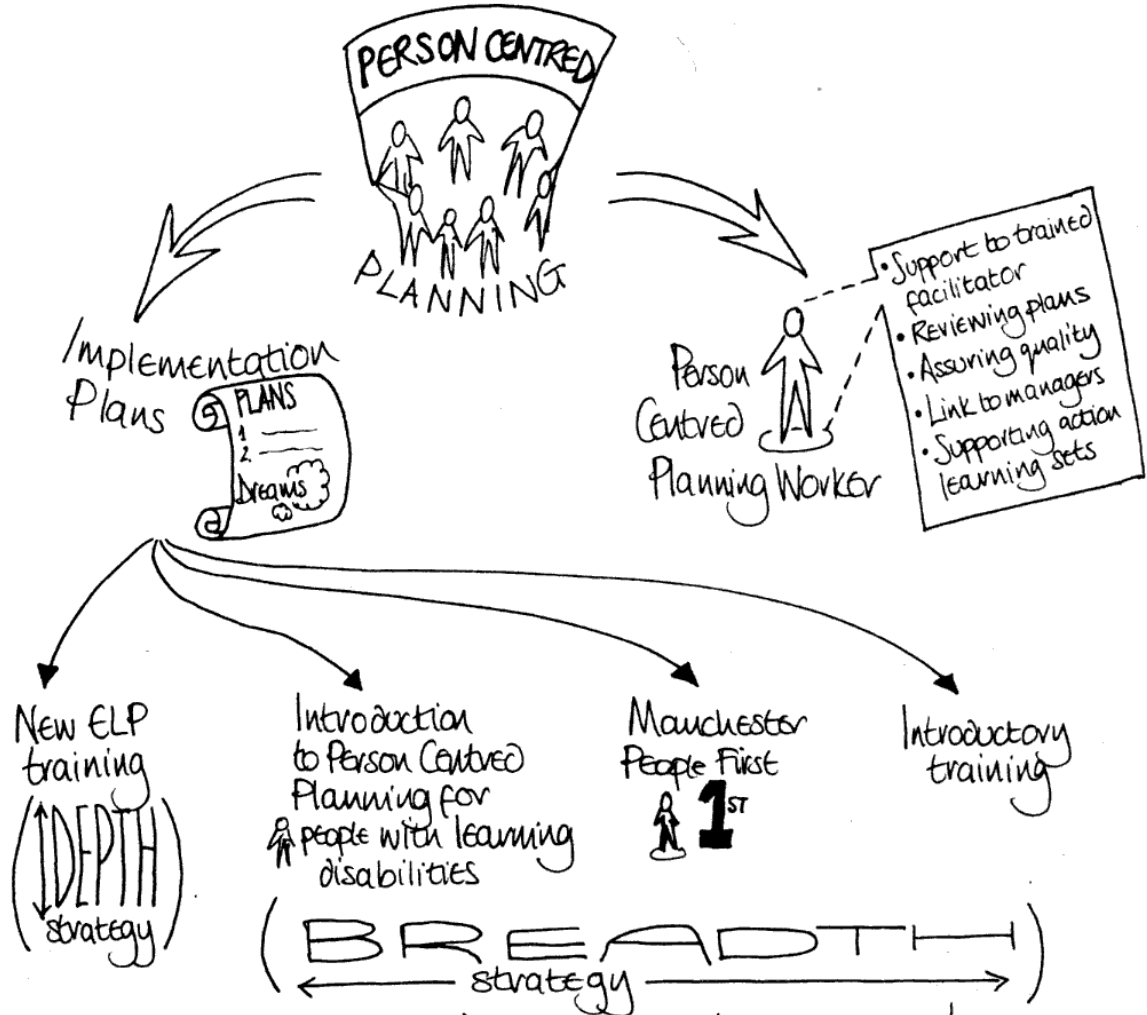 PERSON CENTRED
PLANNING
Implementation
Plans
PLANS
1
2
Dreams
Person
Centred
Planning Worker
• Support to trained
facilitator
• Reviewing plans
• Assuring quality
• Link to managers
• Supporting action
learning sets
New ELP
training
(DEPTH
strategy)
Introduction
to Person Centred
Planning for
people with learning
disabilities
Manchester
People First
1ST
Introductory
training
(BREADTH
strategy)